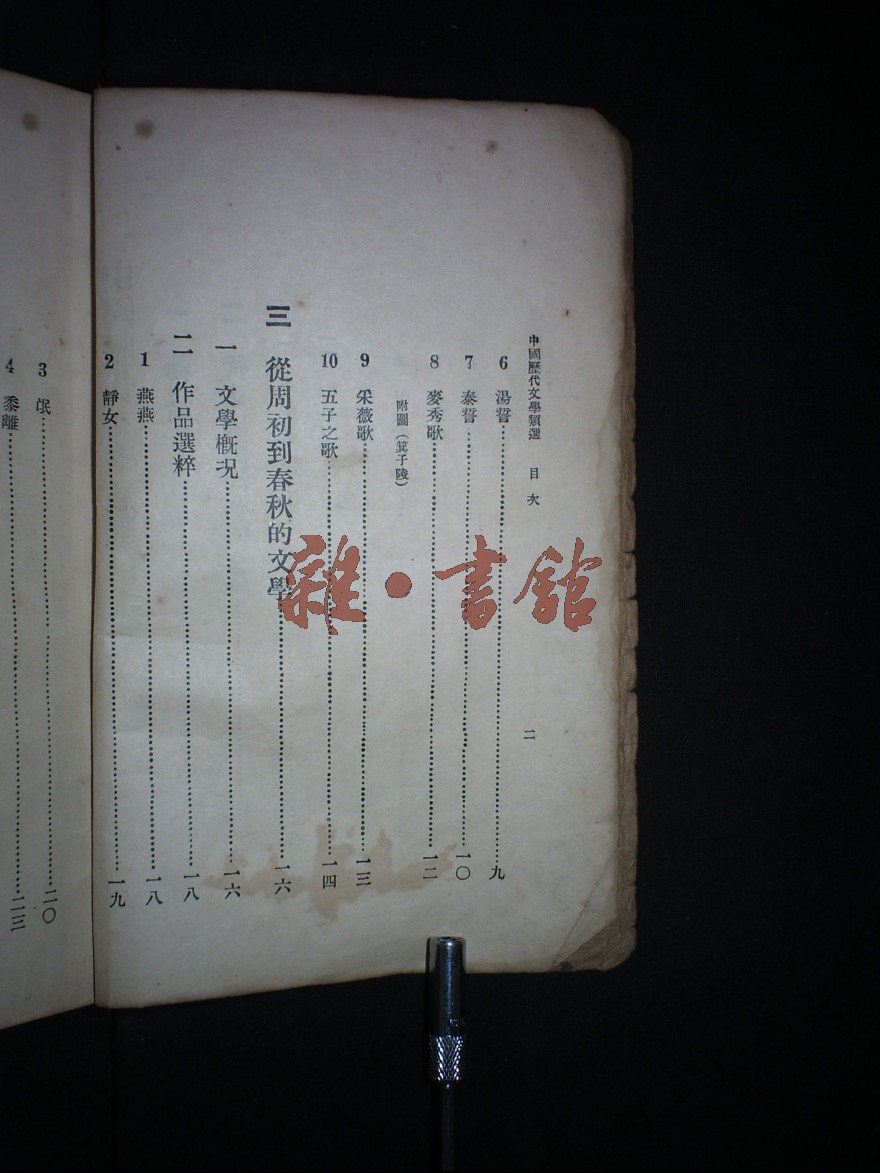 中國歷代文學類選 目次 二
6 湯誓……九
7 泰誓……一〇
8 麥秀歌……一二
附圖（箕子陵）
9 采薇歌……一三
10 五子之歌……一四
三 從周初到春秋的文學……一六
一 文學概況……一六
二 作品選粹……一八
1 燕燕……一八
2 靜女……一九
3 氓……二〇
4 黍離……二三
雜·書館